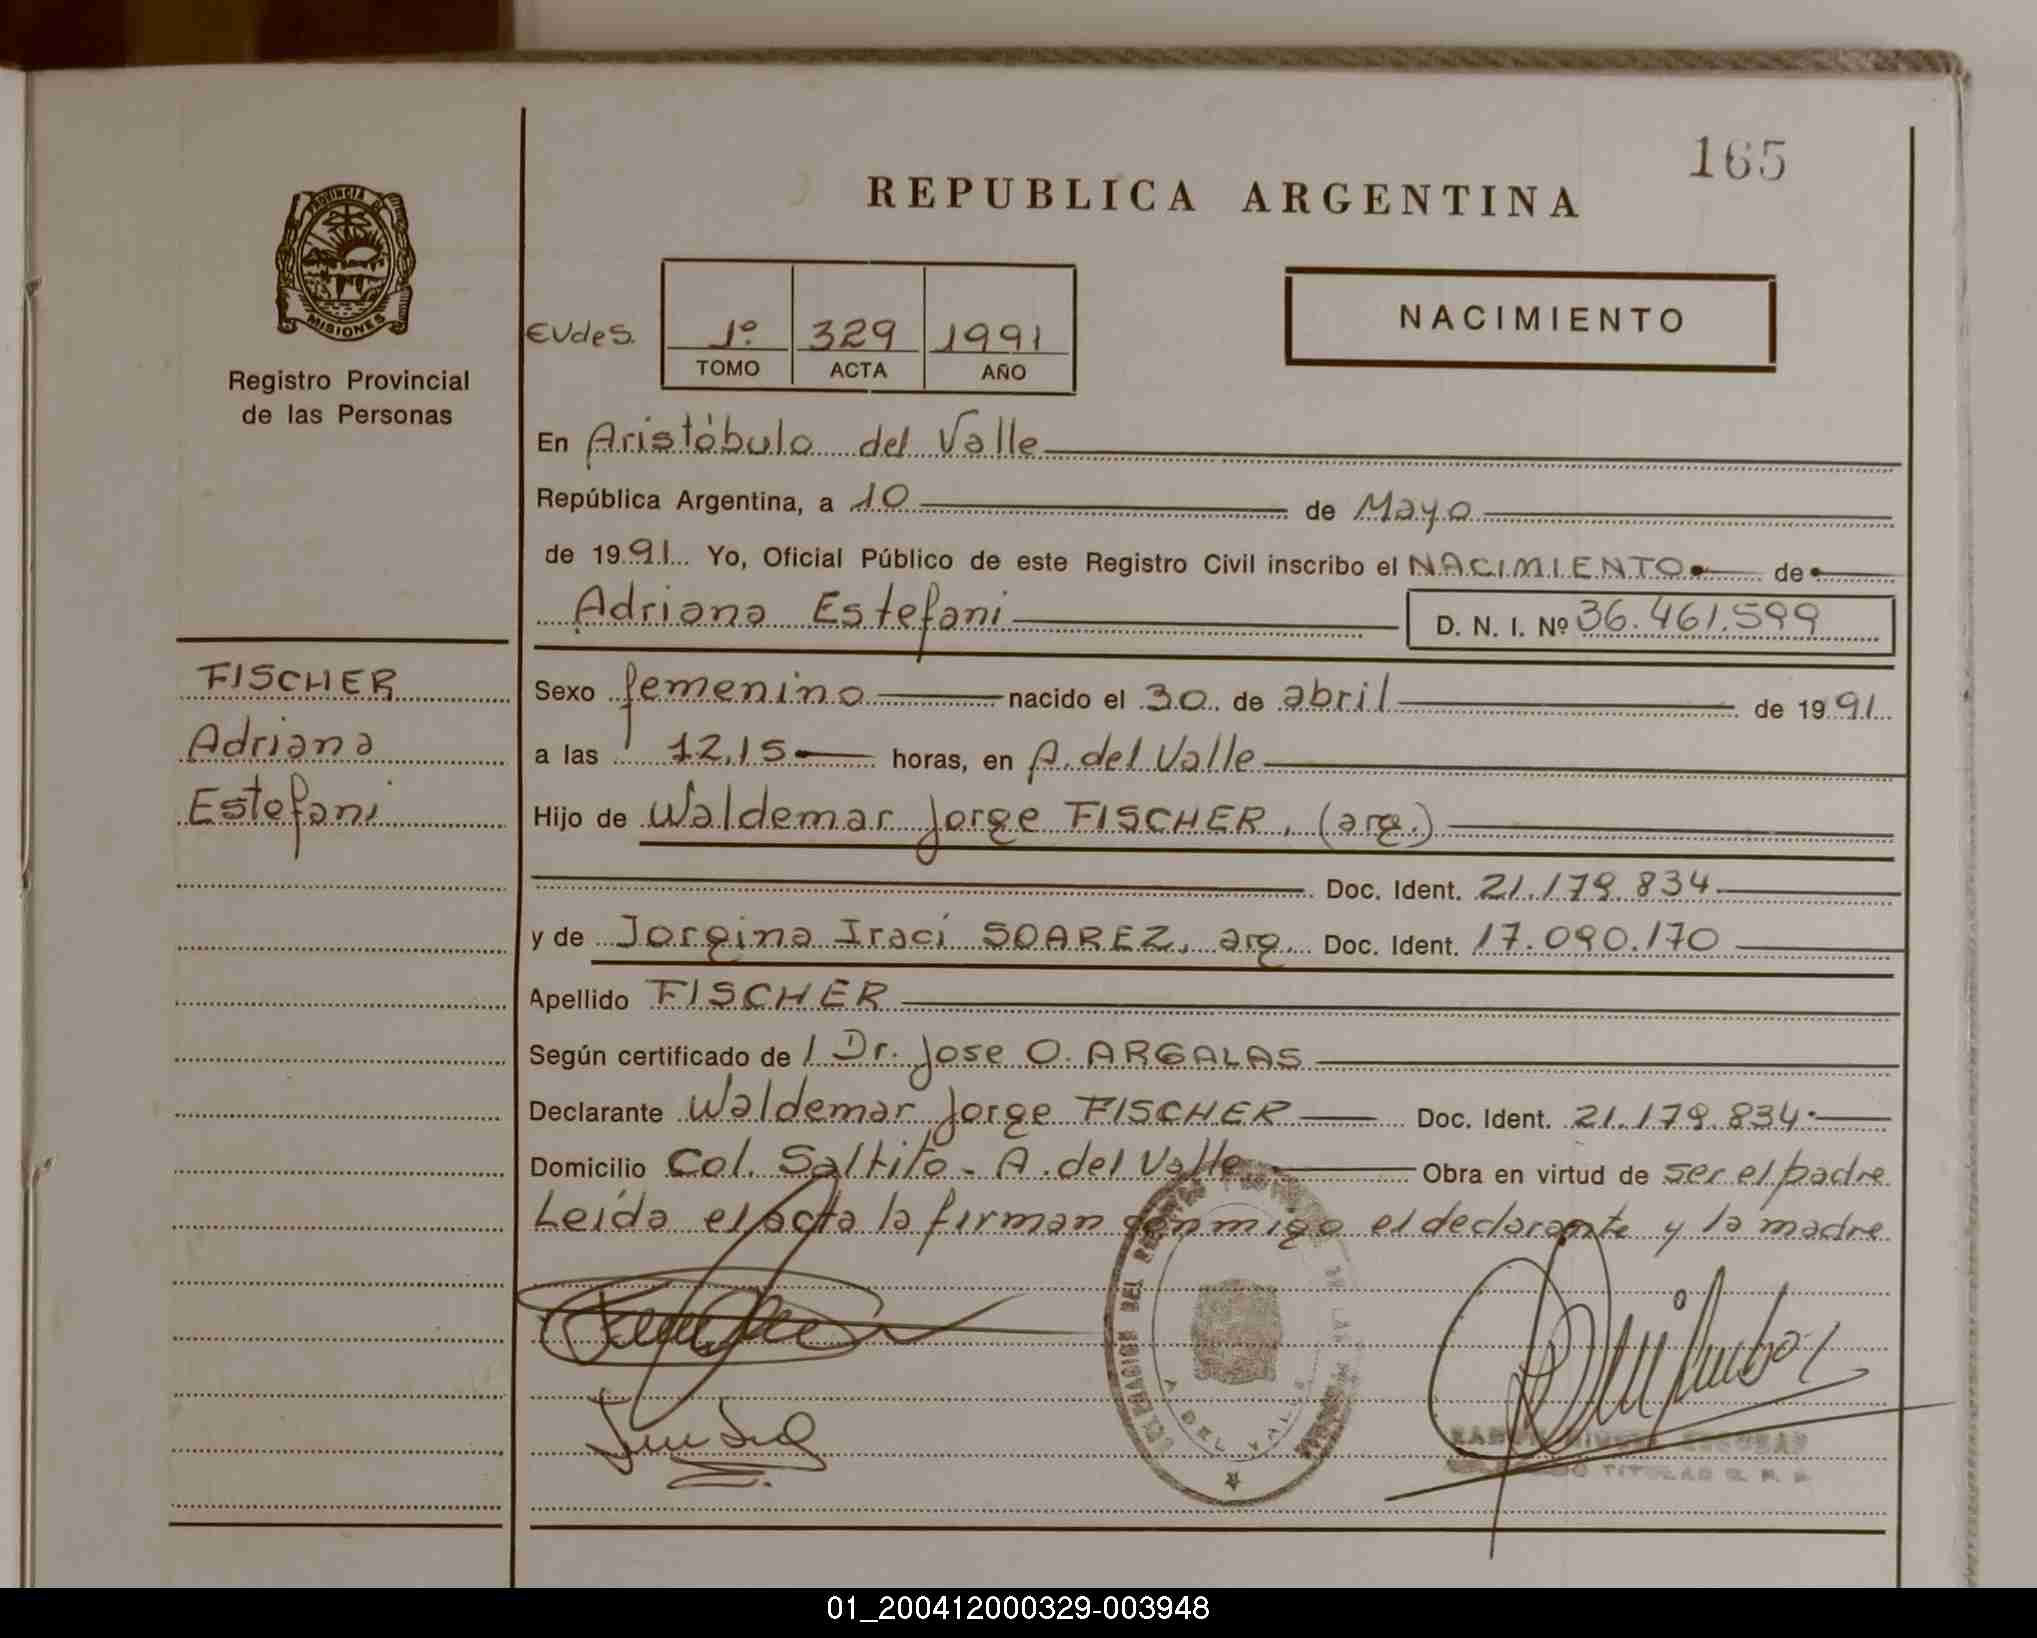 165
REPUBLICA ARGENTINA
PROVINCIA DE
MISIONES
Registro Provincial
de las Personas
EVdeS. 1º 329 1991
TOMO ACTA AÑO
NACIMIENTO
En Aristóbulo del Valle
República Argentina, a 10 de Mayo
de 1991 Yo, Oficial Público de este Registro Civil inscribo el NACIMIENTO de
Adriana Estefani D. N. I. Nº 36.461.599
FISCHER
Adriana
Estefani
Sexo femenino nacido el 30 de abril de 1991
a las 12,15 horas, en A. del Valle
Hijo de Waldemar Jorge FISCHER, (arg.)
Doc. Ident. 21.179.834
y de Jorgina Iraci SOAREZ, arg. Doc. Ident. 17.090.170
Apellido FISCHER
Según certificado de l Dr. Jose O. ARGALAS
Declarante Waldemar Jorge FISCHER Doc. Ident. 21.179.834
Domicilio Col. Saltito - A. del Valle Obra en virtud de ser el padre
Leída el acta la firman conmigo el declarante y la madre
A. DEL VALLE
TITULAR R. P. P.
01_200412000329-003948